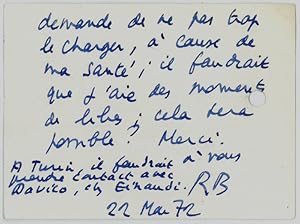 demande de ne pas trop
le charger, à cause de
ma santé; il faudrait
que j'aie des moments
de libres; cela sera
possible? Merci.
A Turin, il faudrait à vous
prendre contact avec
Davico, ch Einaudi. RB
22 Mar 72